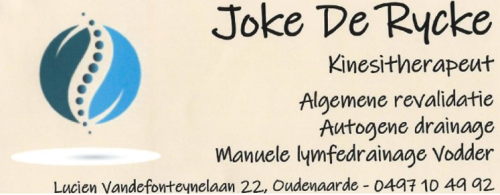 Joke De Rycke
Kinesitherapeut
Algemene revalidatie
Autogene drainage
Manuele lymfedrainage Vodder
Lucien Vandefonteynelaan 22, Oudenaarde - 0497 10 49 92